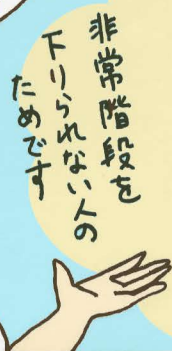 非常階段を
下りられない人の
ためです